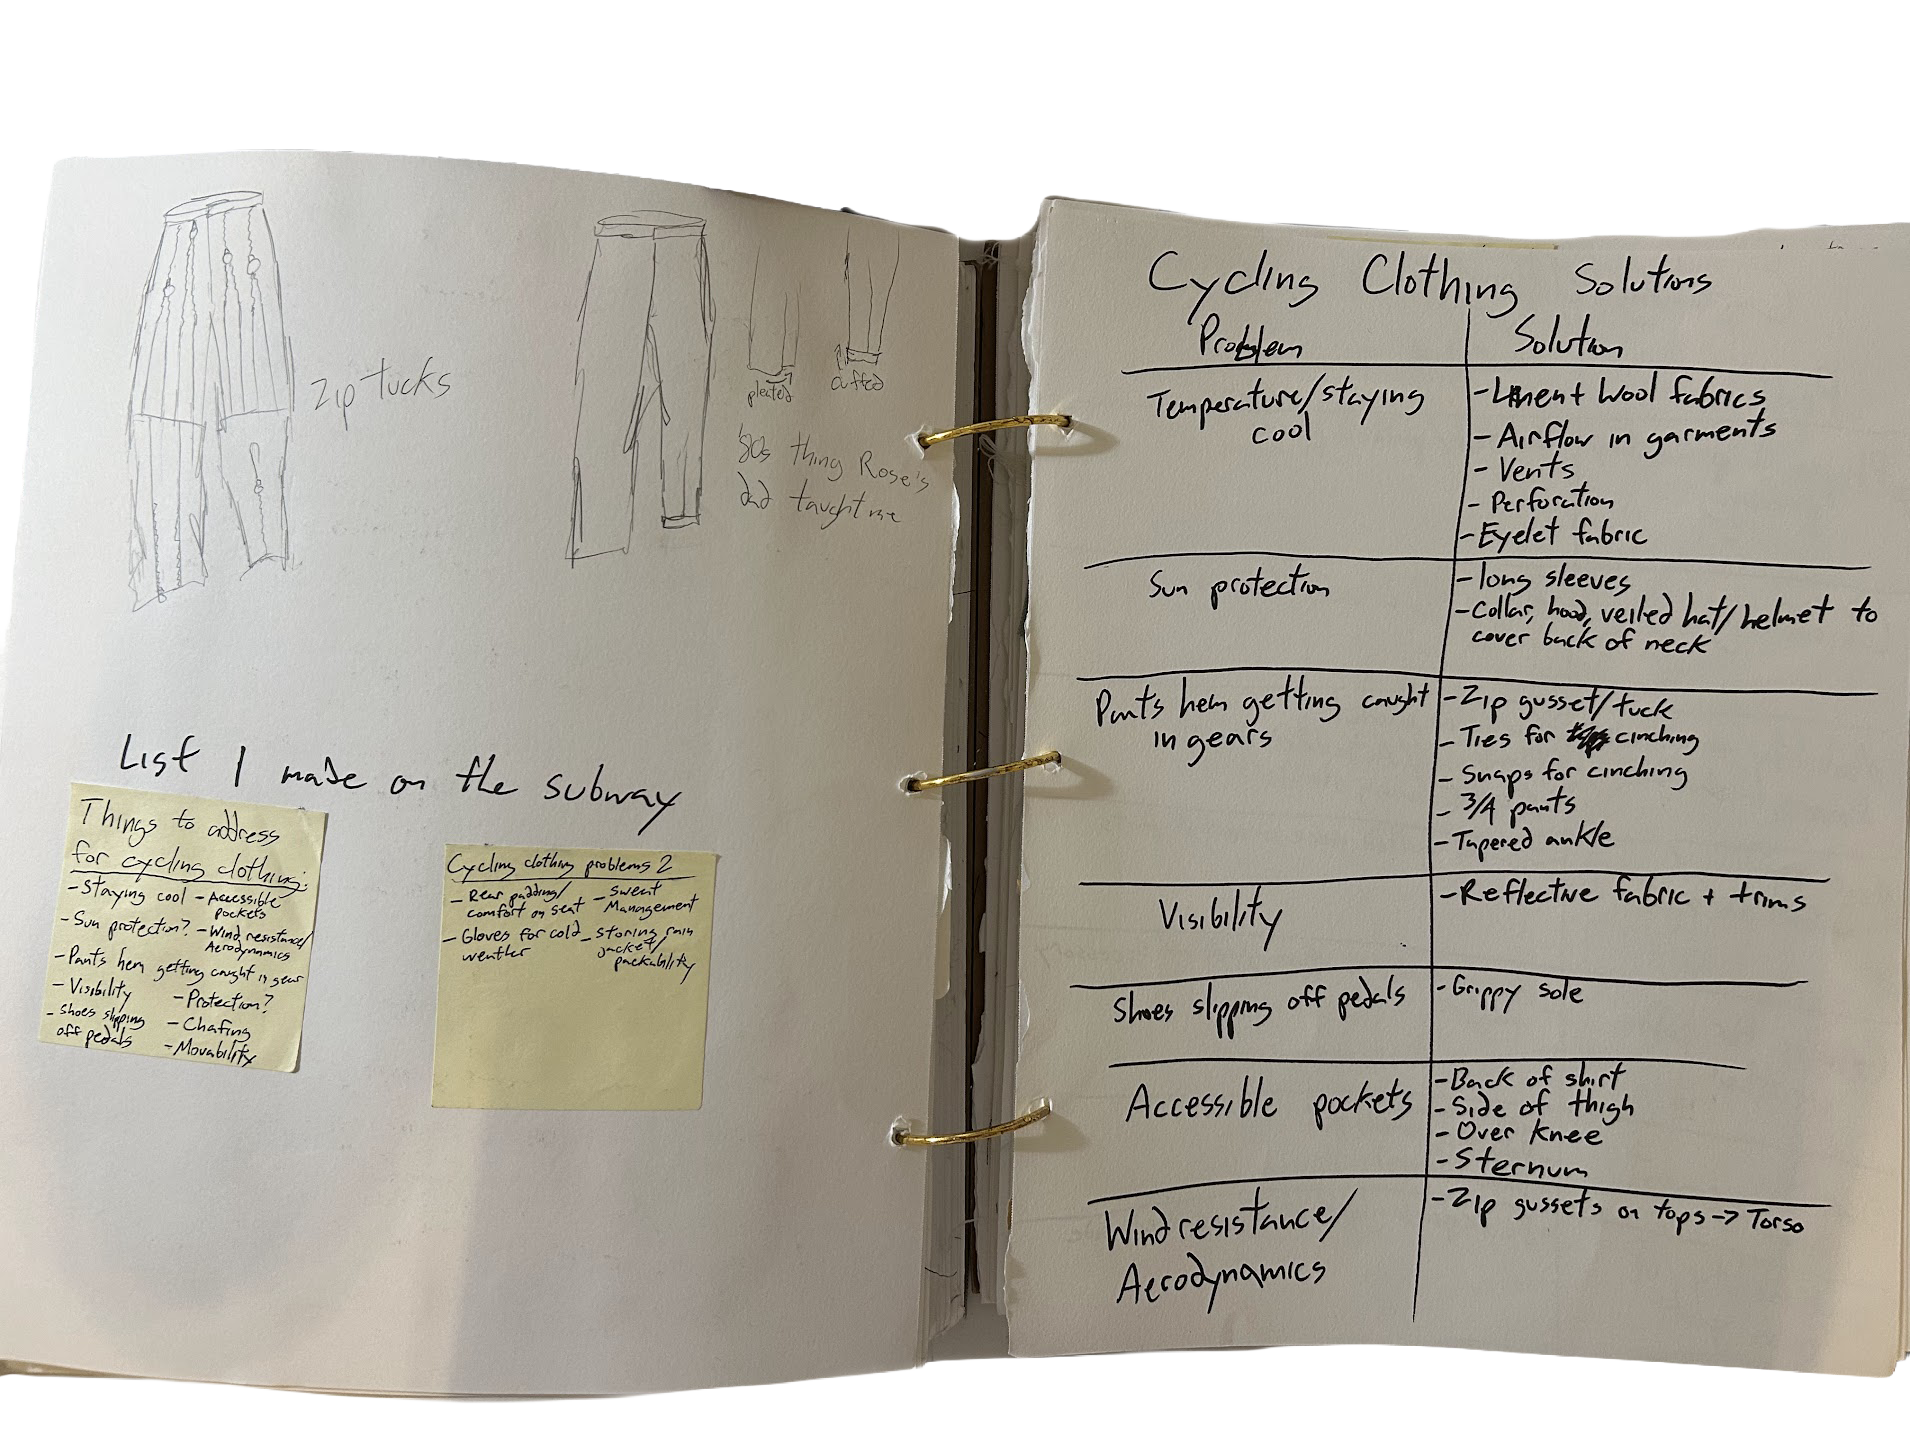 Zip tucks
pleated
cuffed
'80s thing Rose's
dad taught me
List I made on the subway
Things to address
for cycling clothing:
- Staying cool
- Sun protection?
- Pants hem getting caught in gear
- Visibility
- Shoes slipping
off pedals
- Accessible
pockets
- Wind resistance/
Aerodynamics
- Protection?
- Chafing
- Movability
Cycling clothing problems 2
- Rear padding/
comfort on seat
- Gloves for cold
weather
- Sweat
Management
- Storing rain
jacket/
packability
Cycling Clothing Solutions
Problem
Solution
Temperature/staying
cool
- Linen + Wool fabrics
- Airflow in garments
- Vents
- Perforation
- Eyelet fabric
Sun protection
- long sleeves
- Collar, hood, veiled hat/helmet to
cover back of neck
Pants hem getting caught
in gears
- Zip gusset/tuck
- Ties for cinching
- Snaps for cinching
- 3/4 pants
- Tapered ankle
Visibility
- Reflective fabric + trims
Shoes slipping off pedals
- Grippy sole
Accessible pockets
- Back of shirt
- Side of thigh
- Over knee
- Sternum
Wind resistance/
Aerodynamics
- Zip gussets on tops -> Torso